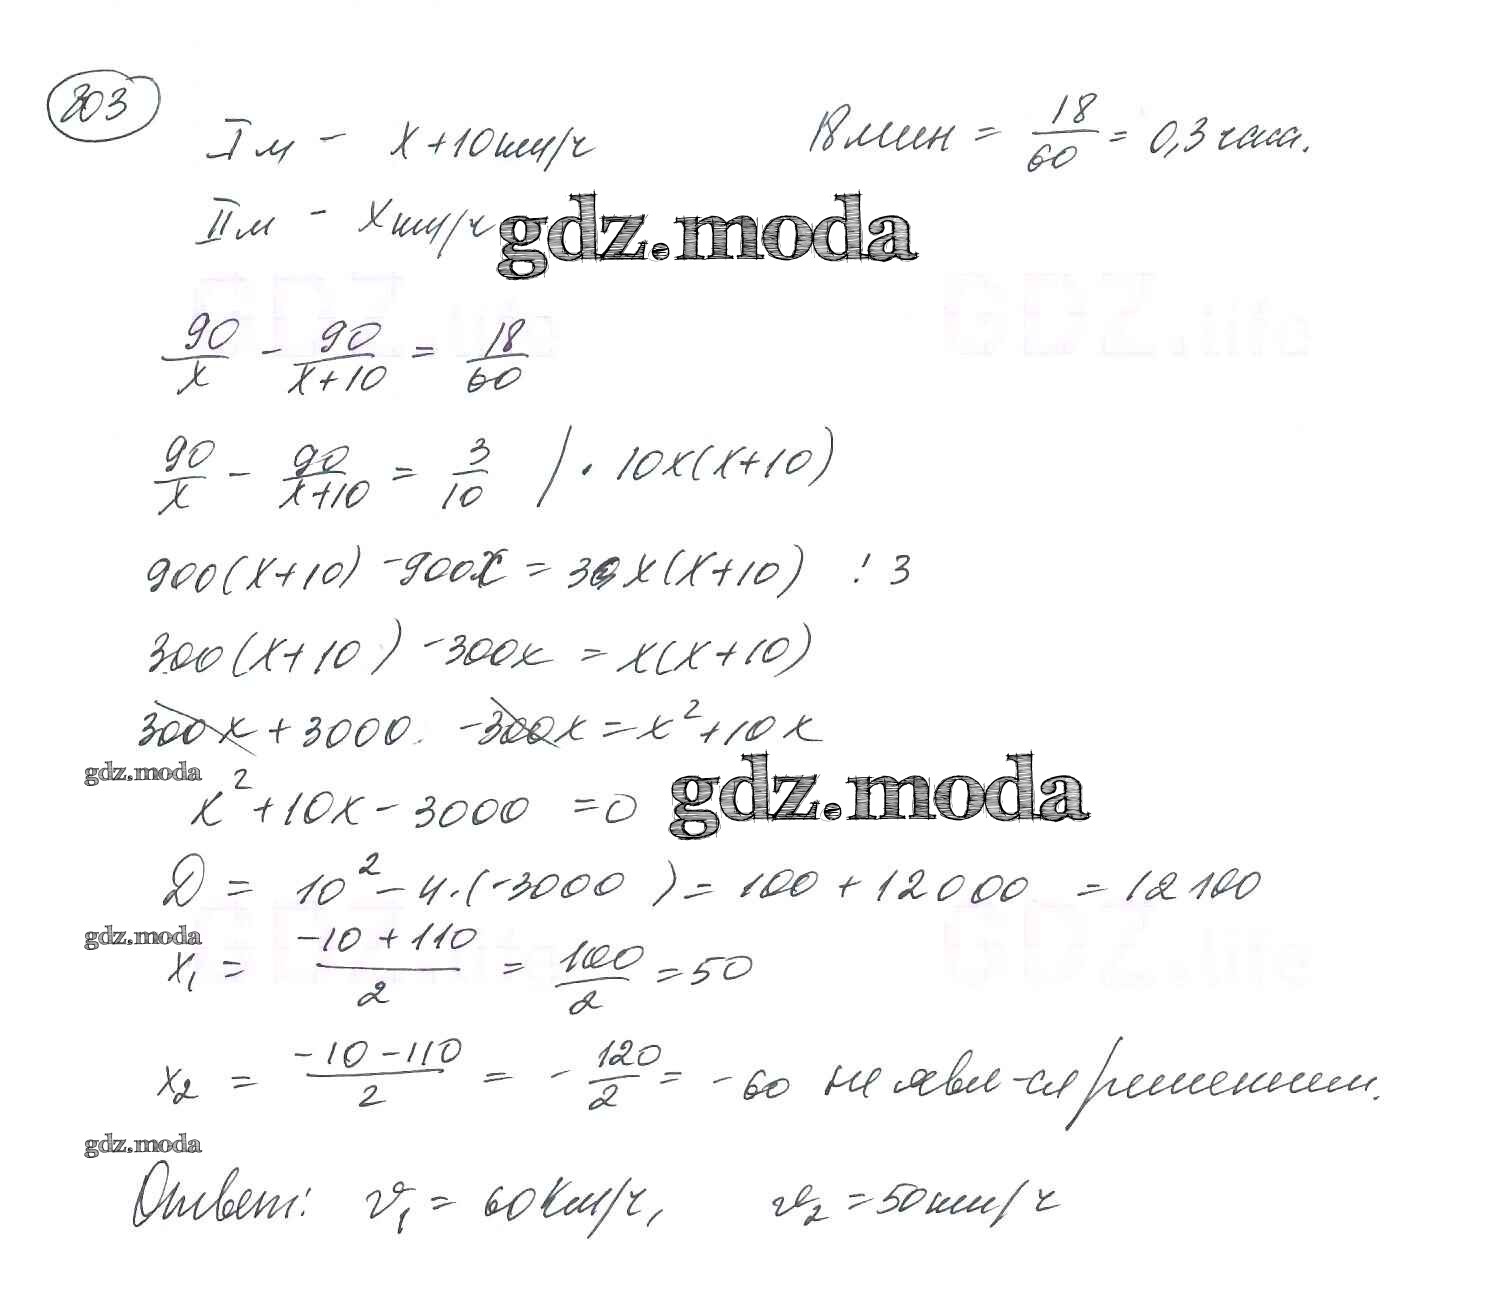 803
I м - x+10 км/ч 18 мин = 18/60 = 0,3 часа.
II м - x км/ч
gdz.moda
GDZ.life GDZ.life
90/x - 90/(x+10) = 18/60
90/x - 90/(x+10) = 3/10 | · 10x(x+10)
900(x+10) - 900x = 3x(x+10) : 3
300(x+10) - 300x = x(x+10)
300x + 3000 - 300x = x² + 10x
gdz.moda
x² + 10x - 3000 = 0
gdz.moda
D = 10² - 4·(-3000) = 100 + 12000 = 12100
gdz.moda
GDZ.life GDZ.life
x₁ = (-10 + 110)/2 = 100/2 = 50
x₂ = (-10 - 110)/2 = -120/2 = -60 не явл-ся решением.
gdz.moda
Ответ: v₁ = 60 км/ч, v₂ = 50 км/ч